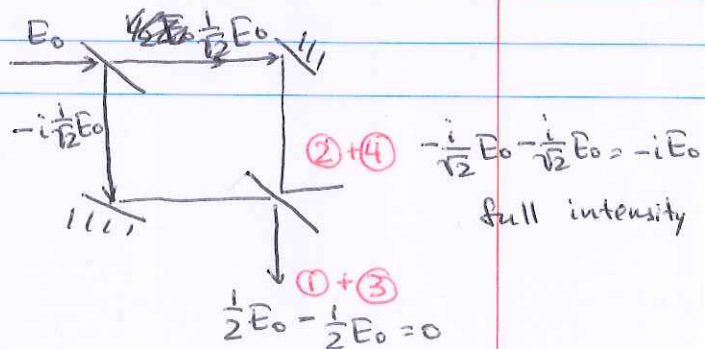 E₀ 1/√2 E₀
-i 1/√2 E₀
②+④ -i/√2 E₀ - i/√2 E₀ = -i E₀
full intensity
①+③
1/2 E₀ - 1/2 E₀ = 0